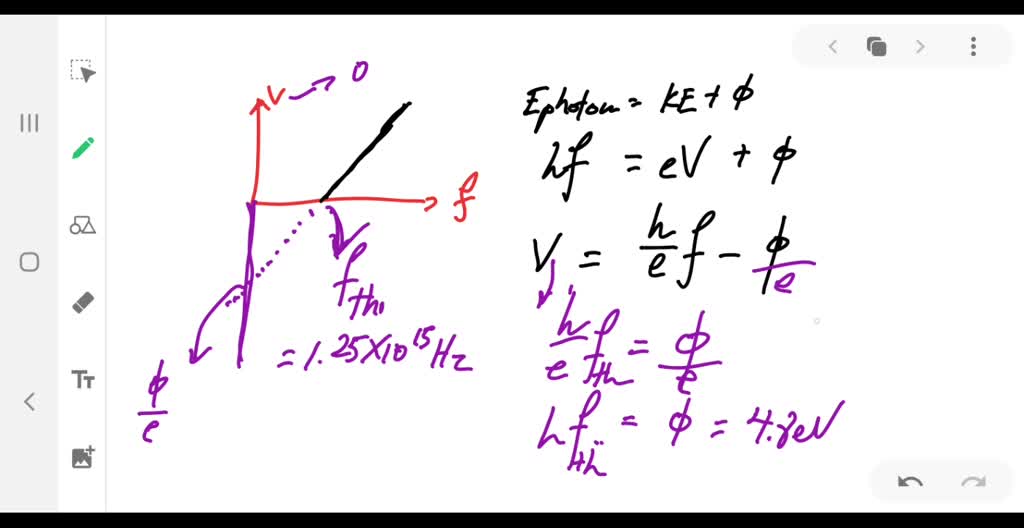 V → 0
f
f th
= 1.25×10^15 Hz
ϕ/e
Ephoton = KE + ϕ
hf = eV + ϕ
V = h/e f - ϕ/e
h/e f th = ϕ/e
hf th = ϕ = 4.8eV
Tт